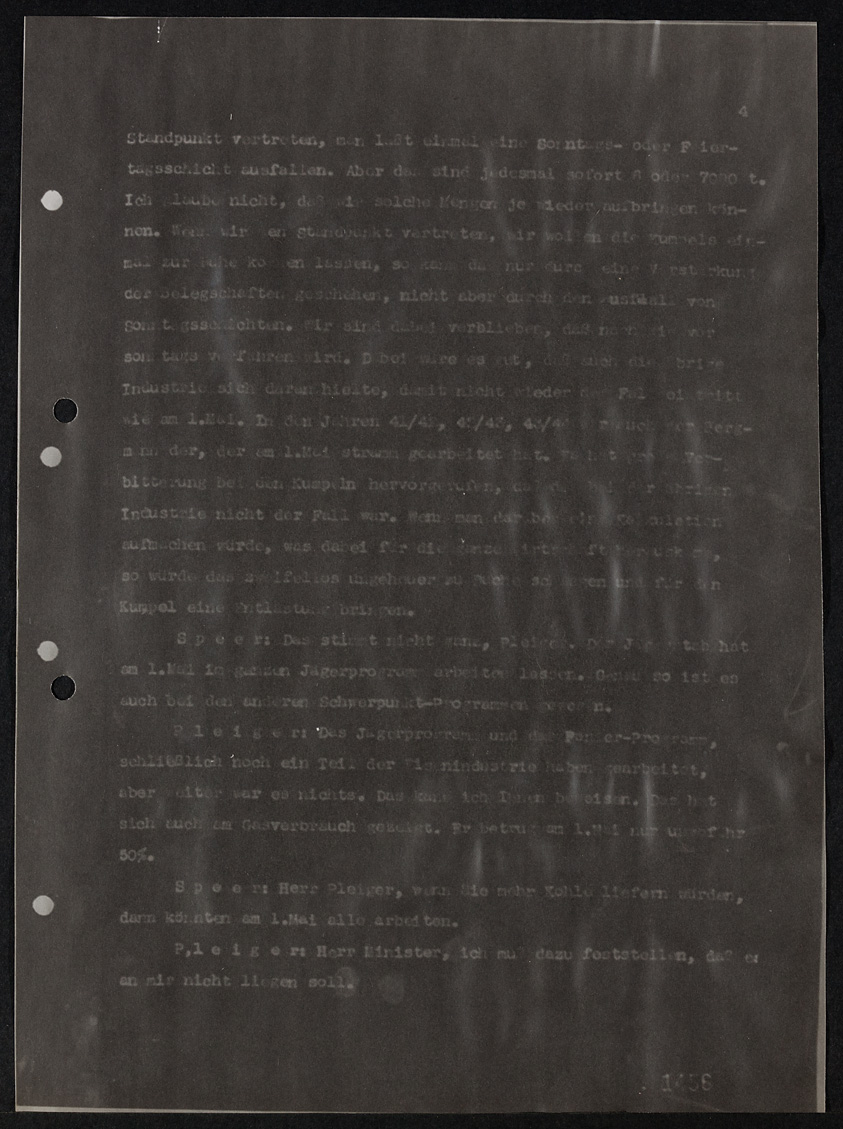 4
Standpunkt vertreten, man läßt einmal eine Sonntags- oder Feier-
tagsschicht ausfallen. Aber das sind jedesmal sofort 6 oder 7000 t.
Ich glaube nicht, daß wir solche Mengen je wieder aufbringen kön-
nen. Wenn wir den Standpunkt vertreten, wir wollen die Kumpels ein-
mal zur Ruhe kommen lassen, so kann das nur durch eine Verstärkung
der Belegschaften geschehen, nicht aber durch den Ausfall von
Sonntagsschichten. Wir sind dabei verblieben, daß nach wie vor
sonntags verfahren wird. Dabei wäre es gut, daß auch die übrige
Industrie sich daran hielte, damit nicht wieder der Fall eintritt
wie am 1.Mai. In den Jahren 41/42, 42/43, 43/44 war auch der Berg-
mann der, der am 1.Mai stramm gearbeitet hat. Es hat große Ver-
bitterung bei den Kumpeln hervorgerufen, daß das bei der übrigen
Industrie nicht der Fall war. Wenn man darüber eine Kalkulation
aufmachen würde, was dabei für die ganze Wirtschaft
so würde das zweifellos ungeheuer zu Buche schlagen und für den
Kumpel eine Entlastung bringen.
S p e e r: Das stimmt nicht ganz, Pleiger. Der Jägerstab hat
am 1.Mai im ganzen Jägerprogramm arbeiten lassen. Genau so ist es
auch bei den anderen Schwerpunkt-Programmen gewesen.
P l e i g e r: Das Jägerprogramm und das Panzer-Programm,
schließlich noch ein Teil der Eisenindustrie haben gearbeitet,
aber weiter war es nichts. Das kann ich Ihnen beweisen. Das hat
sich auch am Gasverbrauch gezeigt. Er betrug am 1.Mai nur ungefähr
50%.
S p e e r: Herr Pleiger, wenn Sie mehr Kohle liefern würden,
dann könnten am 1.Mai alle arbeiten.
P l e i g e r: Herr Minister, ich muß dazu feststellen, daß es
an mir nicht liegen soll.
1456